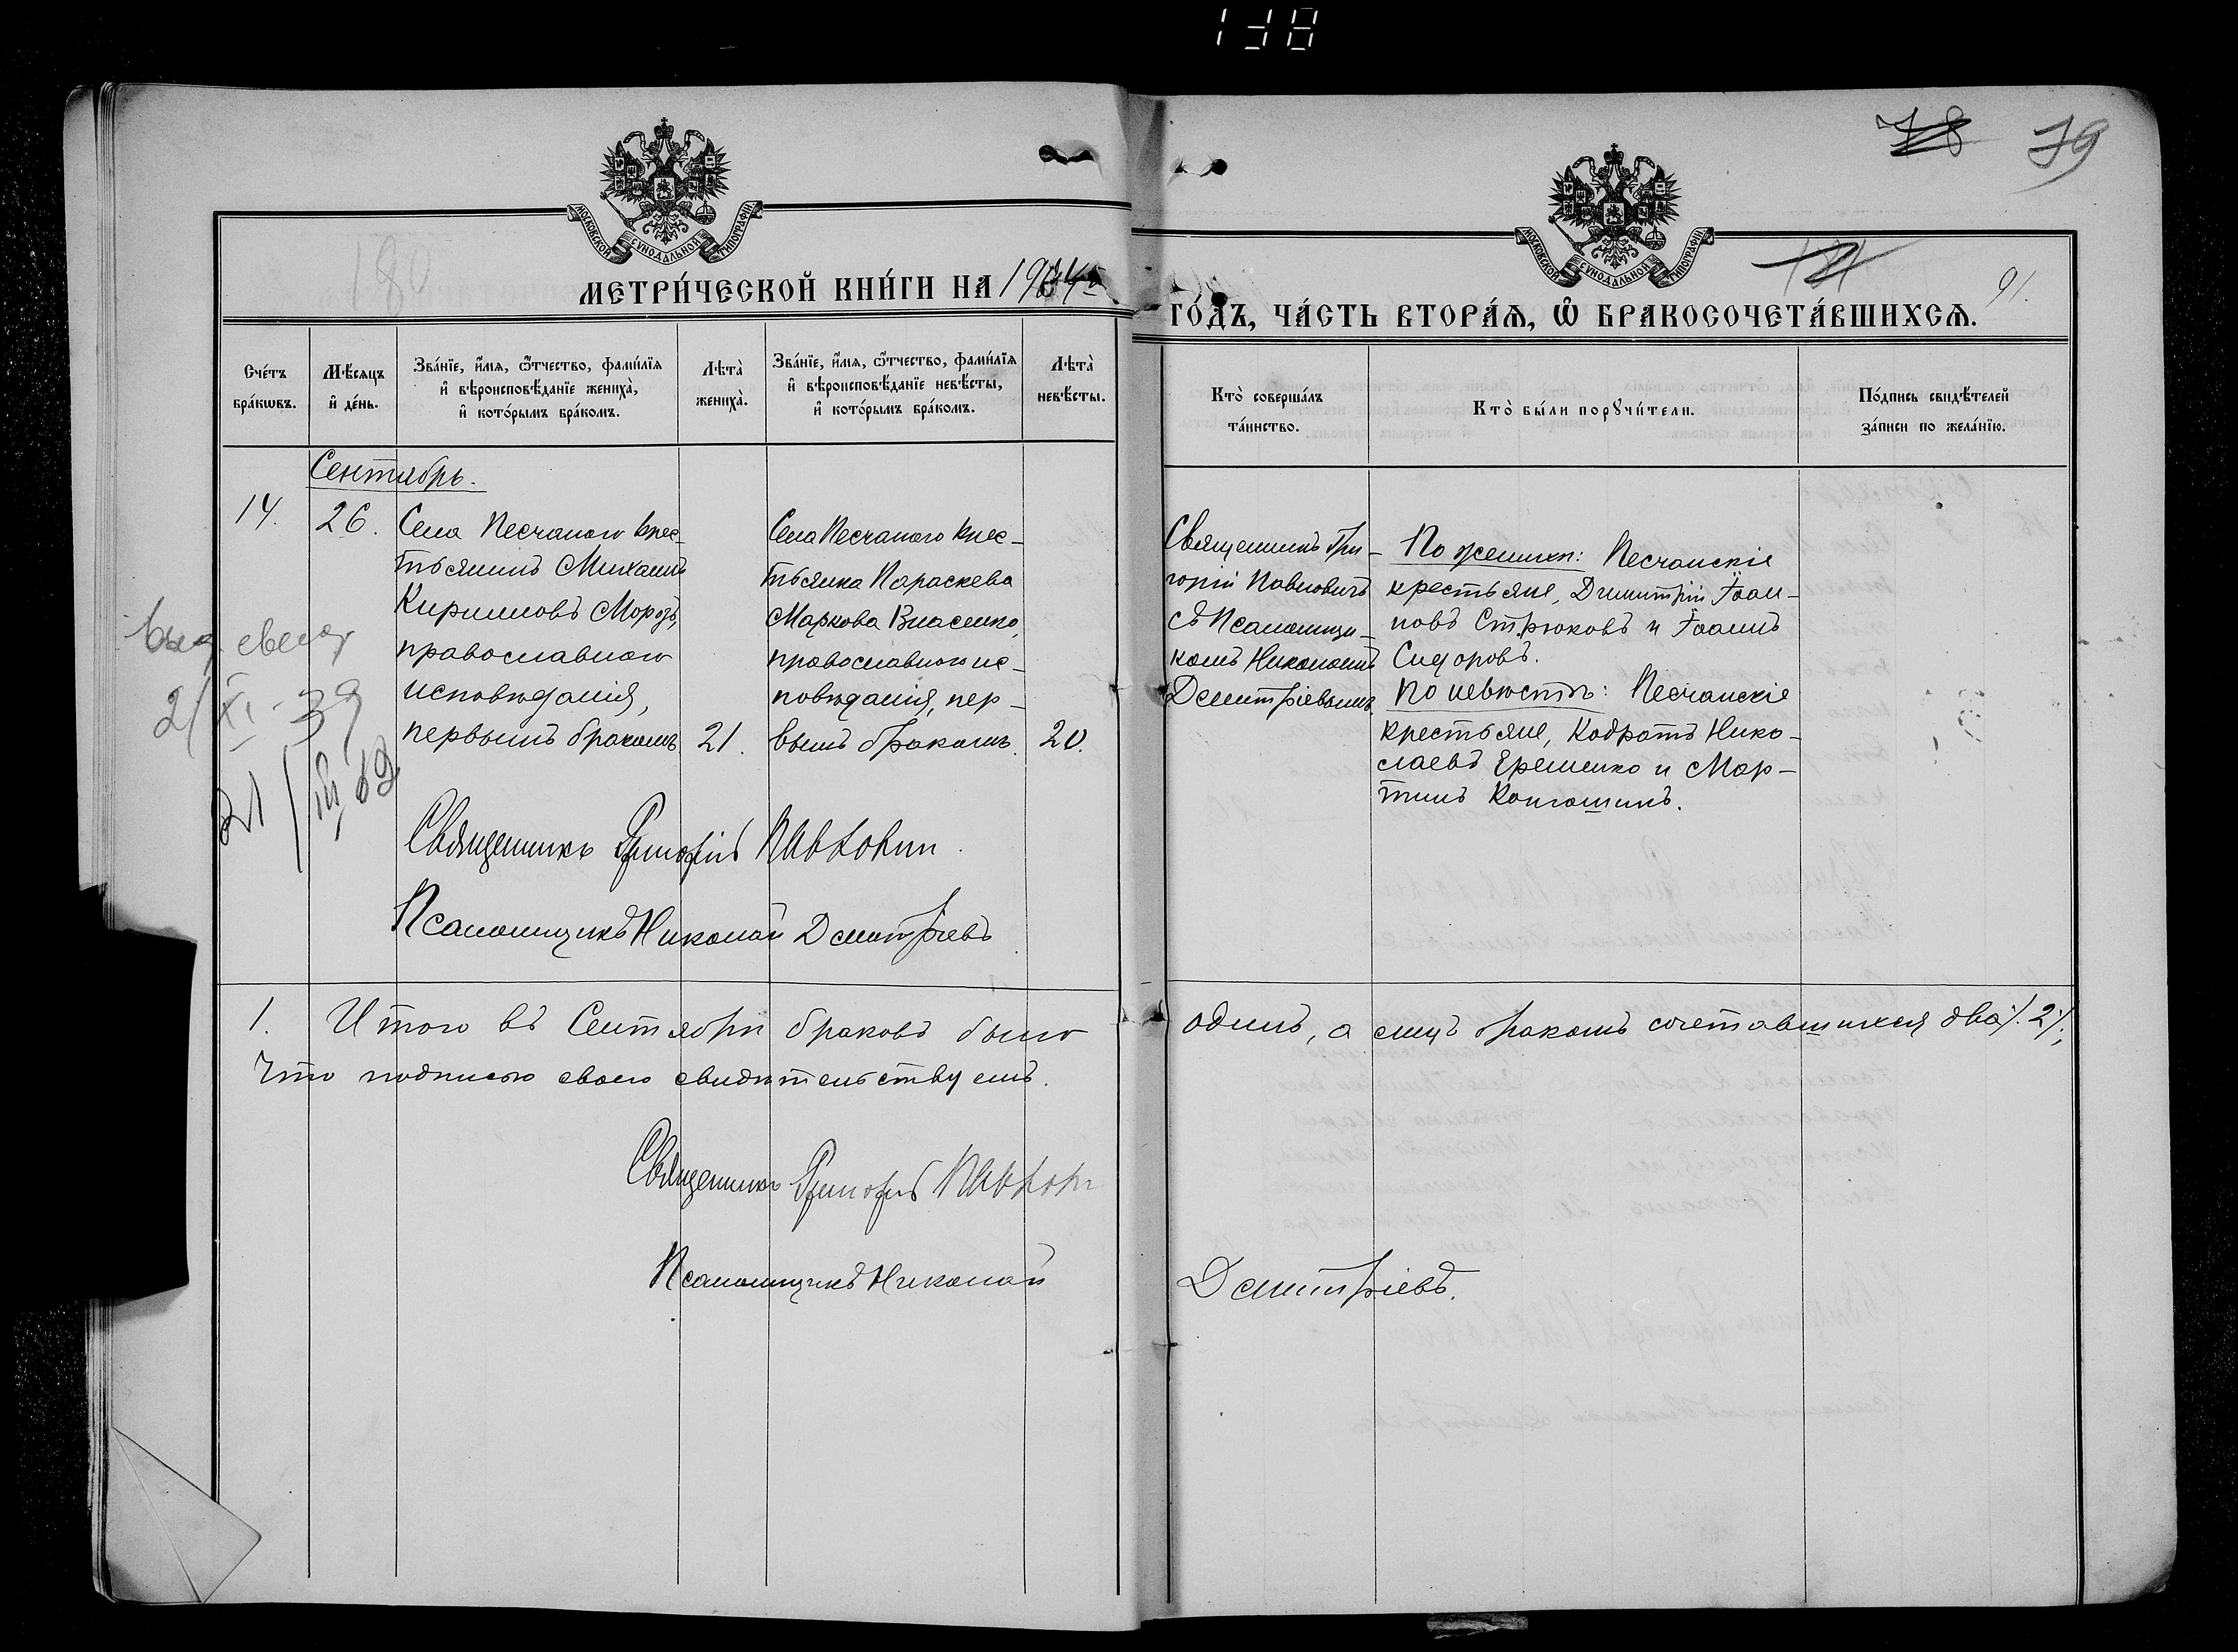 138
78 79
МОСКОВСКОЙ СѴНОДАЛЬНОЙ ТИПОГРАФІИ
МОСКОВСКОЙ СѴНОДАЛЬНОЙ ТИПОГРАФІИ
180
МЕТРИ́ЧЕСКОЙ КНИ́ГИ НА 1904й
ГО́ДЪ, ЧА́СТЬ ВТОРА́Ѧ, Ѡ҆ БРАКОСОЧЕТА́ВШИХСѦ.
91.
Сче́тъ бра́кѡвъ.
Мѣ́сяцъ и҆ де́нь.
Зва́нїе, и҆́мя, ѻ҆́тчество, фами́лїя и҆ вѣроисповѣ́данїе жениха̀, и҆ кото́рымъ бра́комъ.
Лѣта̀ жениха̀.
Зва́нїе, и҆́мя, ѻ҆́тчество, фами́лїя и҆ вѣроисповѣ́данїе невѣ́сты, и҆ кото́рымъ бра́комъ.
Лѣта̀ невѣ́сты.
Кто̀ соверша́лъ та́инство.
Кто̀ бы́ли порꙋчи́тели.
По́дпись свидѣ́телей за́писи по жела́нїю.
Сентябрь.
14.
26.
Села Песчаного крес-
тьянинъ Михаилъ
Кирилловъ Морозъ,
православного
исповѣданія,
первымъ бракомъ
21.
Села Песчаного крес-
тьянка Параскева
Маркова Власенко,
православного ис-
повѣданія, пер-
вымъ бракомъ.
20.
Священникъ Гри-
горій Павловичъ
съ Псаломщи-
комъ Николаемъ
Дмитріевымъ
По женихѣ: Песчанскіе
крестьяне, Димитрій Іоан-
новъ Стрюковъ и Іоаннъ
Сидоровъ.
По невѣстѣ: Песчанскіе
крестьяне, Кодратъ Нико-
лаевъ Еременко и Мар-
тинъ
21
XI - 39
Священникъ Григорій Павлович
Псаломщикъ Николай Дмитріевъ
1. Итого въ Сентябрѣ браковъ было одинъ, а лицъ бракомъ сочетавшихся два /. 2 /.;
Что подписью своею свидѣтельствуемъ.
Священникъ Григорій Павлович
Псаломщикъ Николай Дмитріевъ.